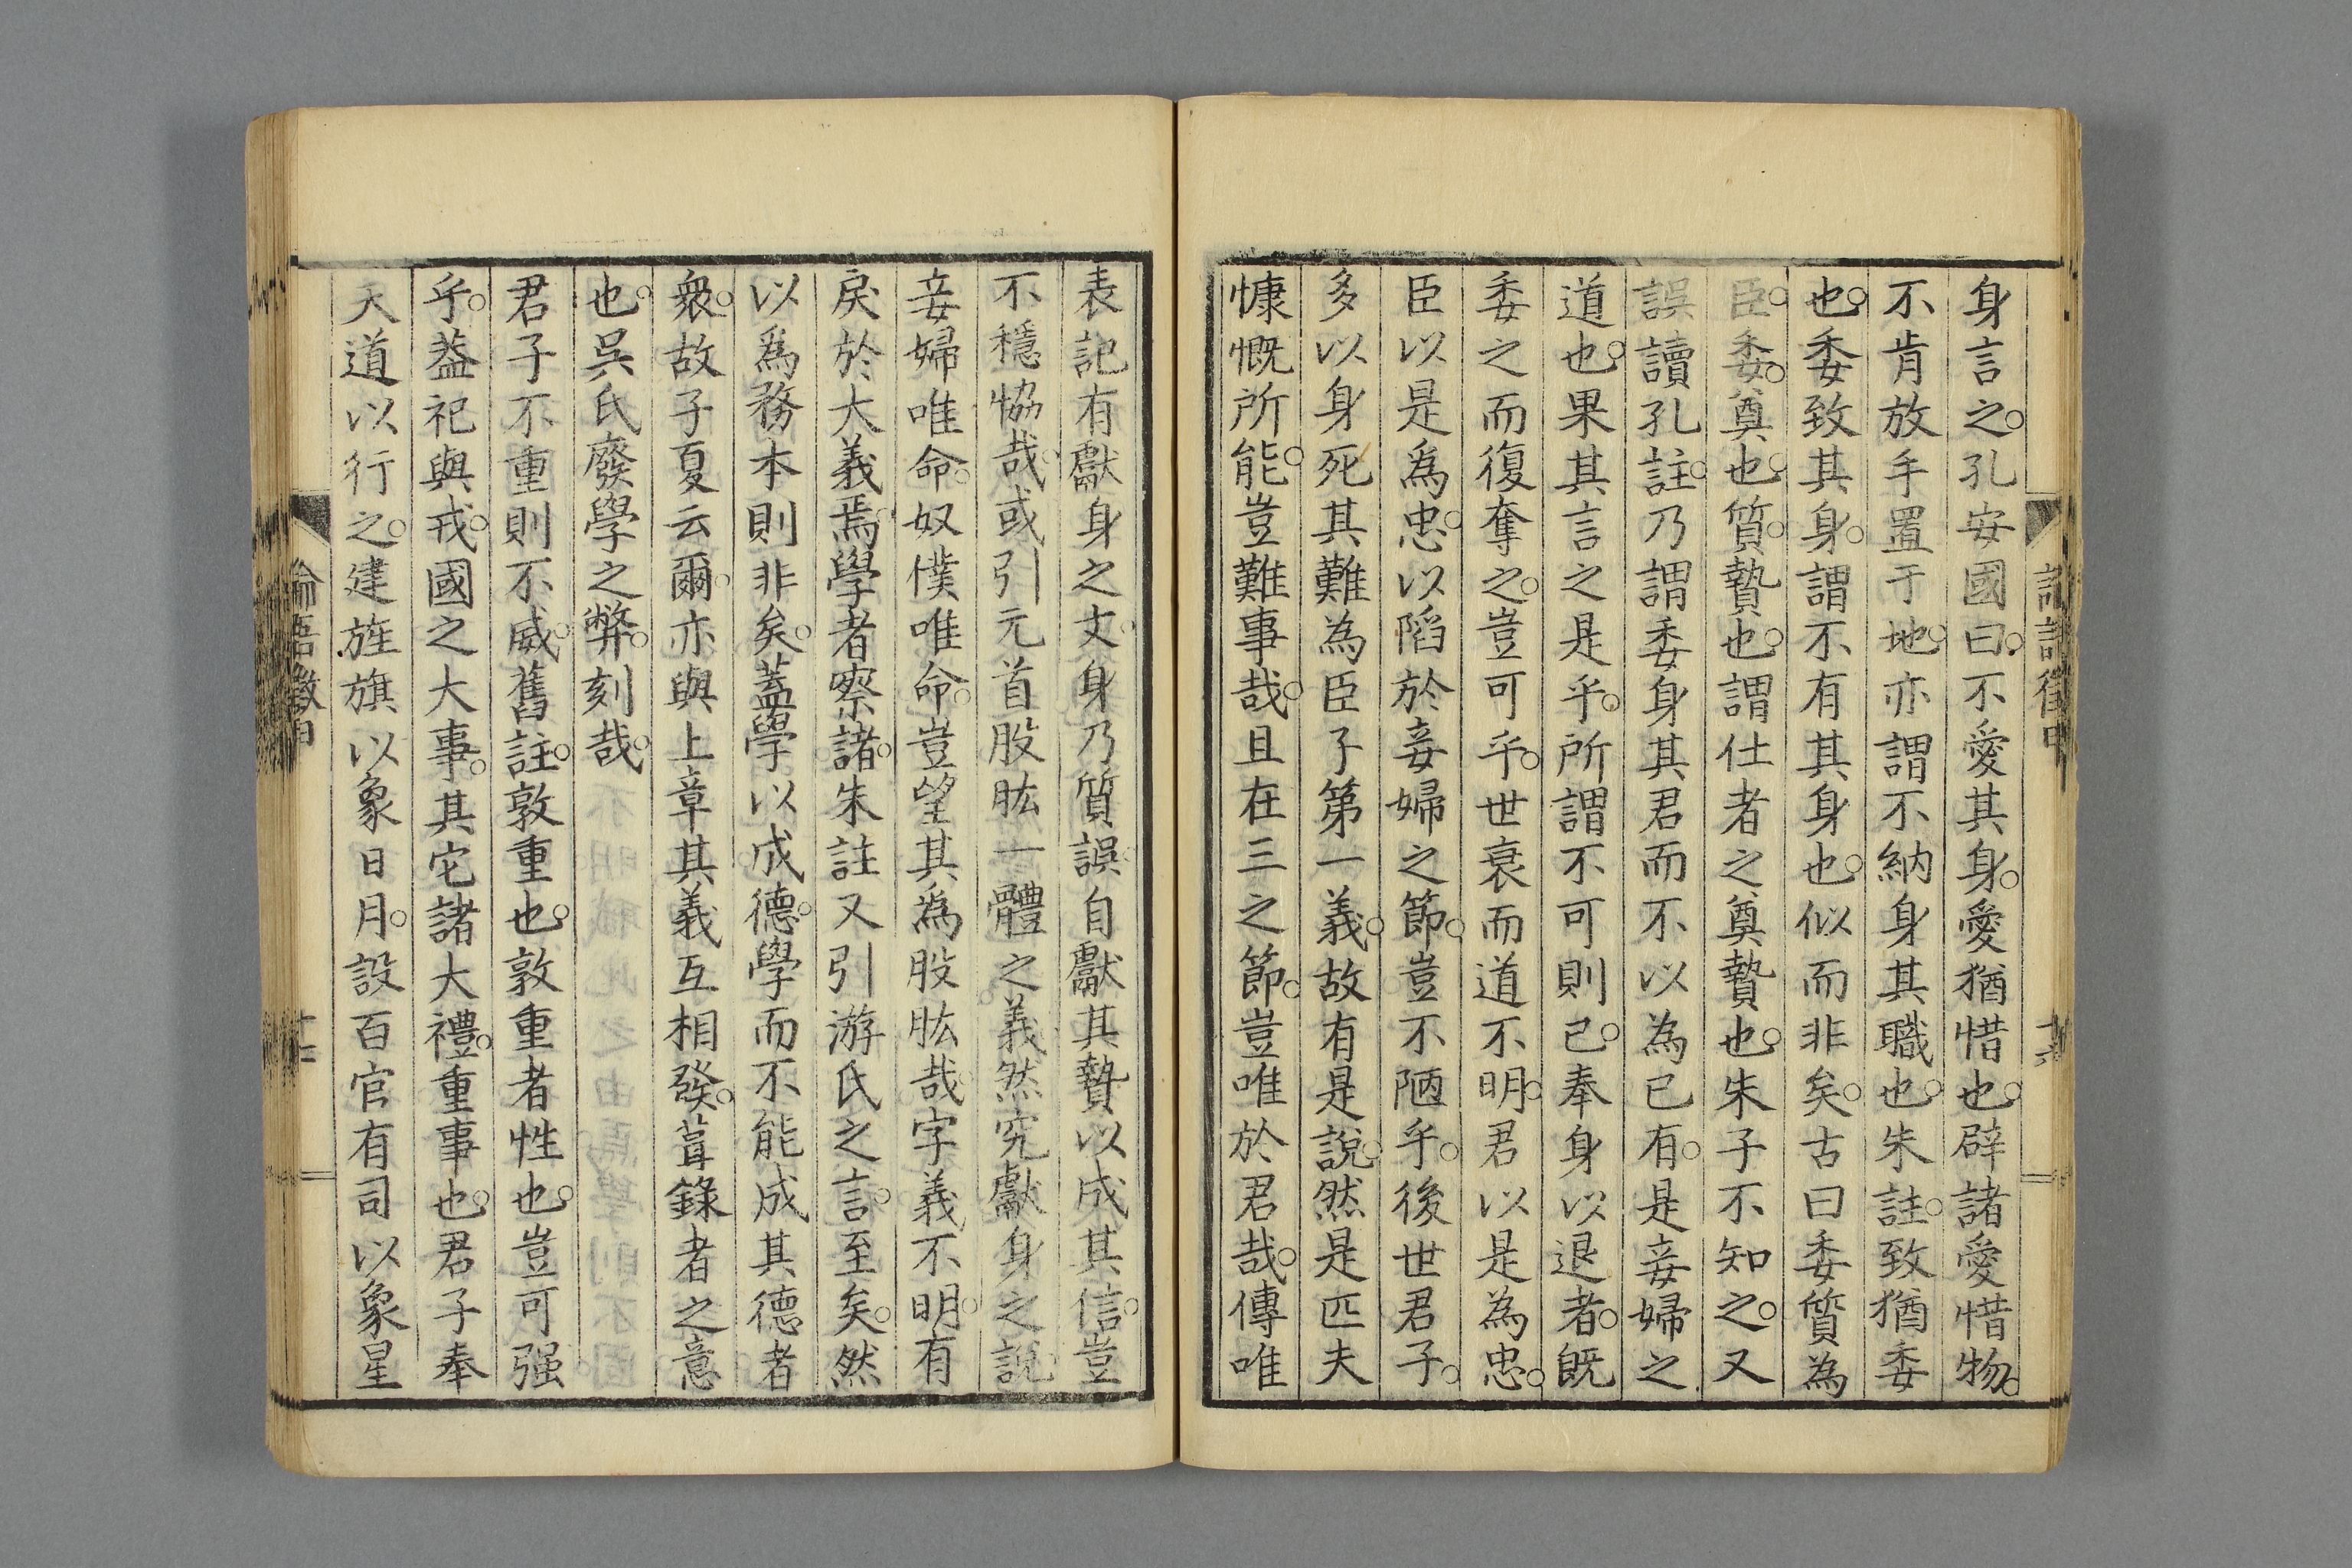 身言之。孔安國曰。不愛其身。愛猶惜也。辟諸愛惜物。
不肯放手置于地。亦謂不納身其職也。朱註。致猶委
也。委致其身。謂不有其身也。似而非矣。古曰委質為
臣。委。奠也。質。贄也。謂仕者之奠贄也。朱子不知之。又
誤讀孔註。乃謂委身其君而不以為已有。是妾婦之
道也。果其言之是乎。所謂不可則已。奉身以退者。既
委之而復奪之。豈可乎。世衰而道不明。君以是為忠。
臣以是爲忠。以陷於妾婦之節。豈不陋乎。後世君子。
多以身死其難為臣子第一義。故有是說。然是匹夫
慷慨所能。豈難事哉。且在三之節。豈唯於君哉。傳唯
表記有獻身之文。身乃質誤。自獻其贄以成其信。豈
不穩恊哉。或引元首股肱一體之義。然究獻身之說
妾婦唯命。奴僕唯命。豈望其爲股肱哉。字義不明。有
戾於大義焉。學者察諸。朱註又引游氏之言。至矣。然
以爲務本則非矣。蓋學以成德。學而不能成其德者
衆。故子夏云爾。亦與上章其義互相發。葺錄者之意
也。吳氏廢學之弊。刻哉。
君子不重則不威。舊註。敦重也。敦重者性也。豈可强
乎。葢祀與戎。國之大事。其它諸大禮。重事也。君子奉
天道以行之。建旌旗以象日月。設百官有司以象星